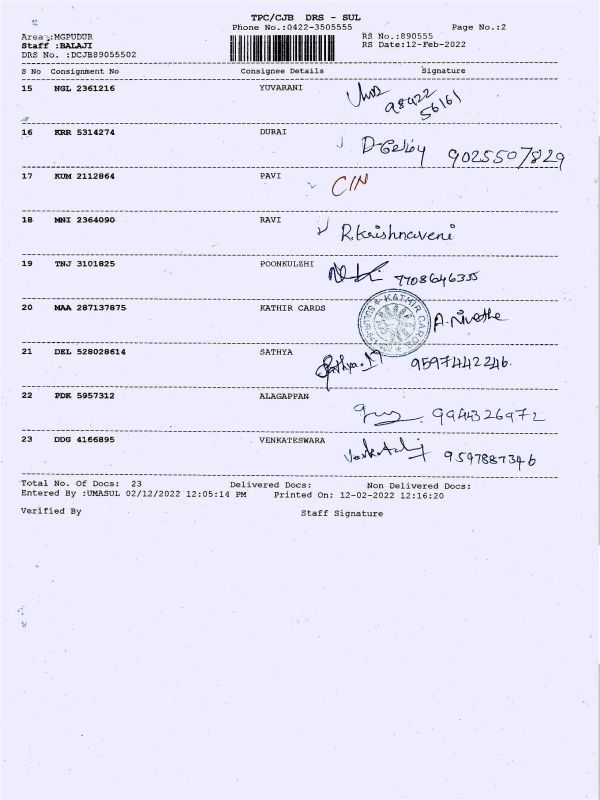 TPC/CJB DRS - SUL
Phone No.:0422-3505555 Page No.:2
Area :MGPUDUR RS No.:890555
Staff :BALAJI RS Date:12-Feb-2022
DRS No. :DCJB89055502
S No Consignment No Consignee Details Signature
15 NGL 2361216 YUVARANI
98422
56161
16 KRR 5314274 DURAI
9025507829
17 KUM 2112864 PAVI
CIN
18 MNI 2364090 RAVI
R.Krishnaveni
19 TNJ 3101825 POONKULZHI
7708646335
20 MAA 287137875 KATHIR CARDS
KATHIR CARDS
A.Nivethe
21 DEL 528028614 SATHYA
Sathya.M 9597442246.
22 PDK 5957312 ALAGAPPAN
9944326972
23 DDG 4166895 VENKATESWARA
9597887346
Total No. Of Docs: 23 Delivered Docs: Non Delivered Docs:
Entered By :UMASUL 02/12/2022 12:05:14 PM Printed On: 12-02-2022 12:16:20
Verified By Staff Signature